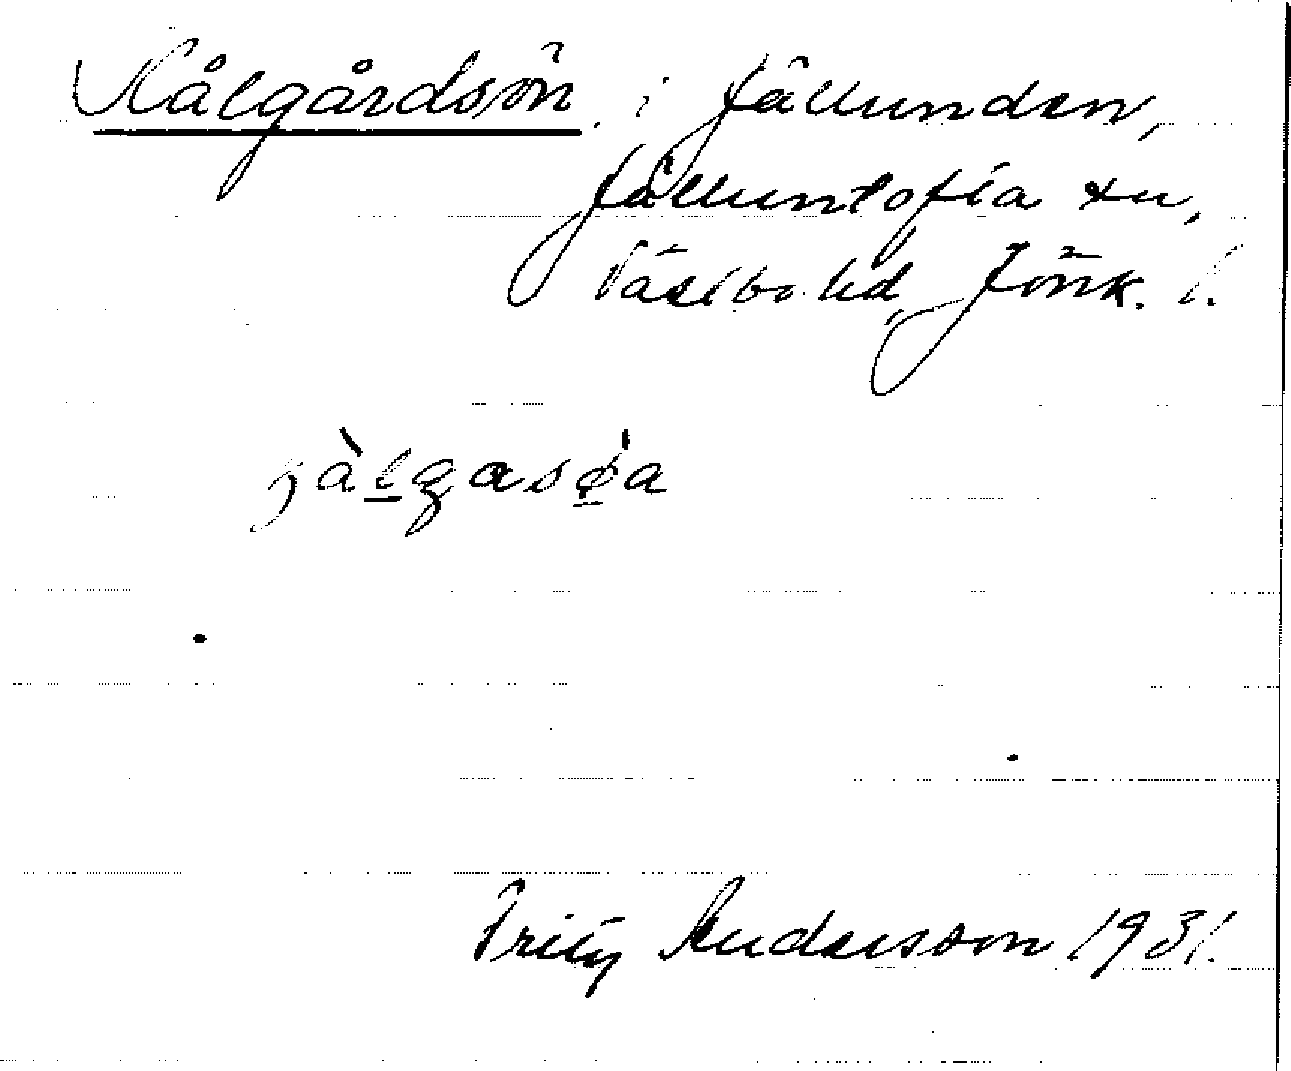 Kålgårdsön i Jällunden,
Jälluntofta sn,
Västbo hd, Jönk. l.
Fritz Andersson 1931.